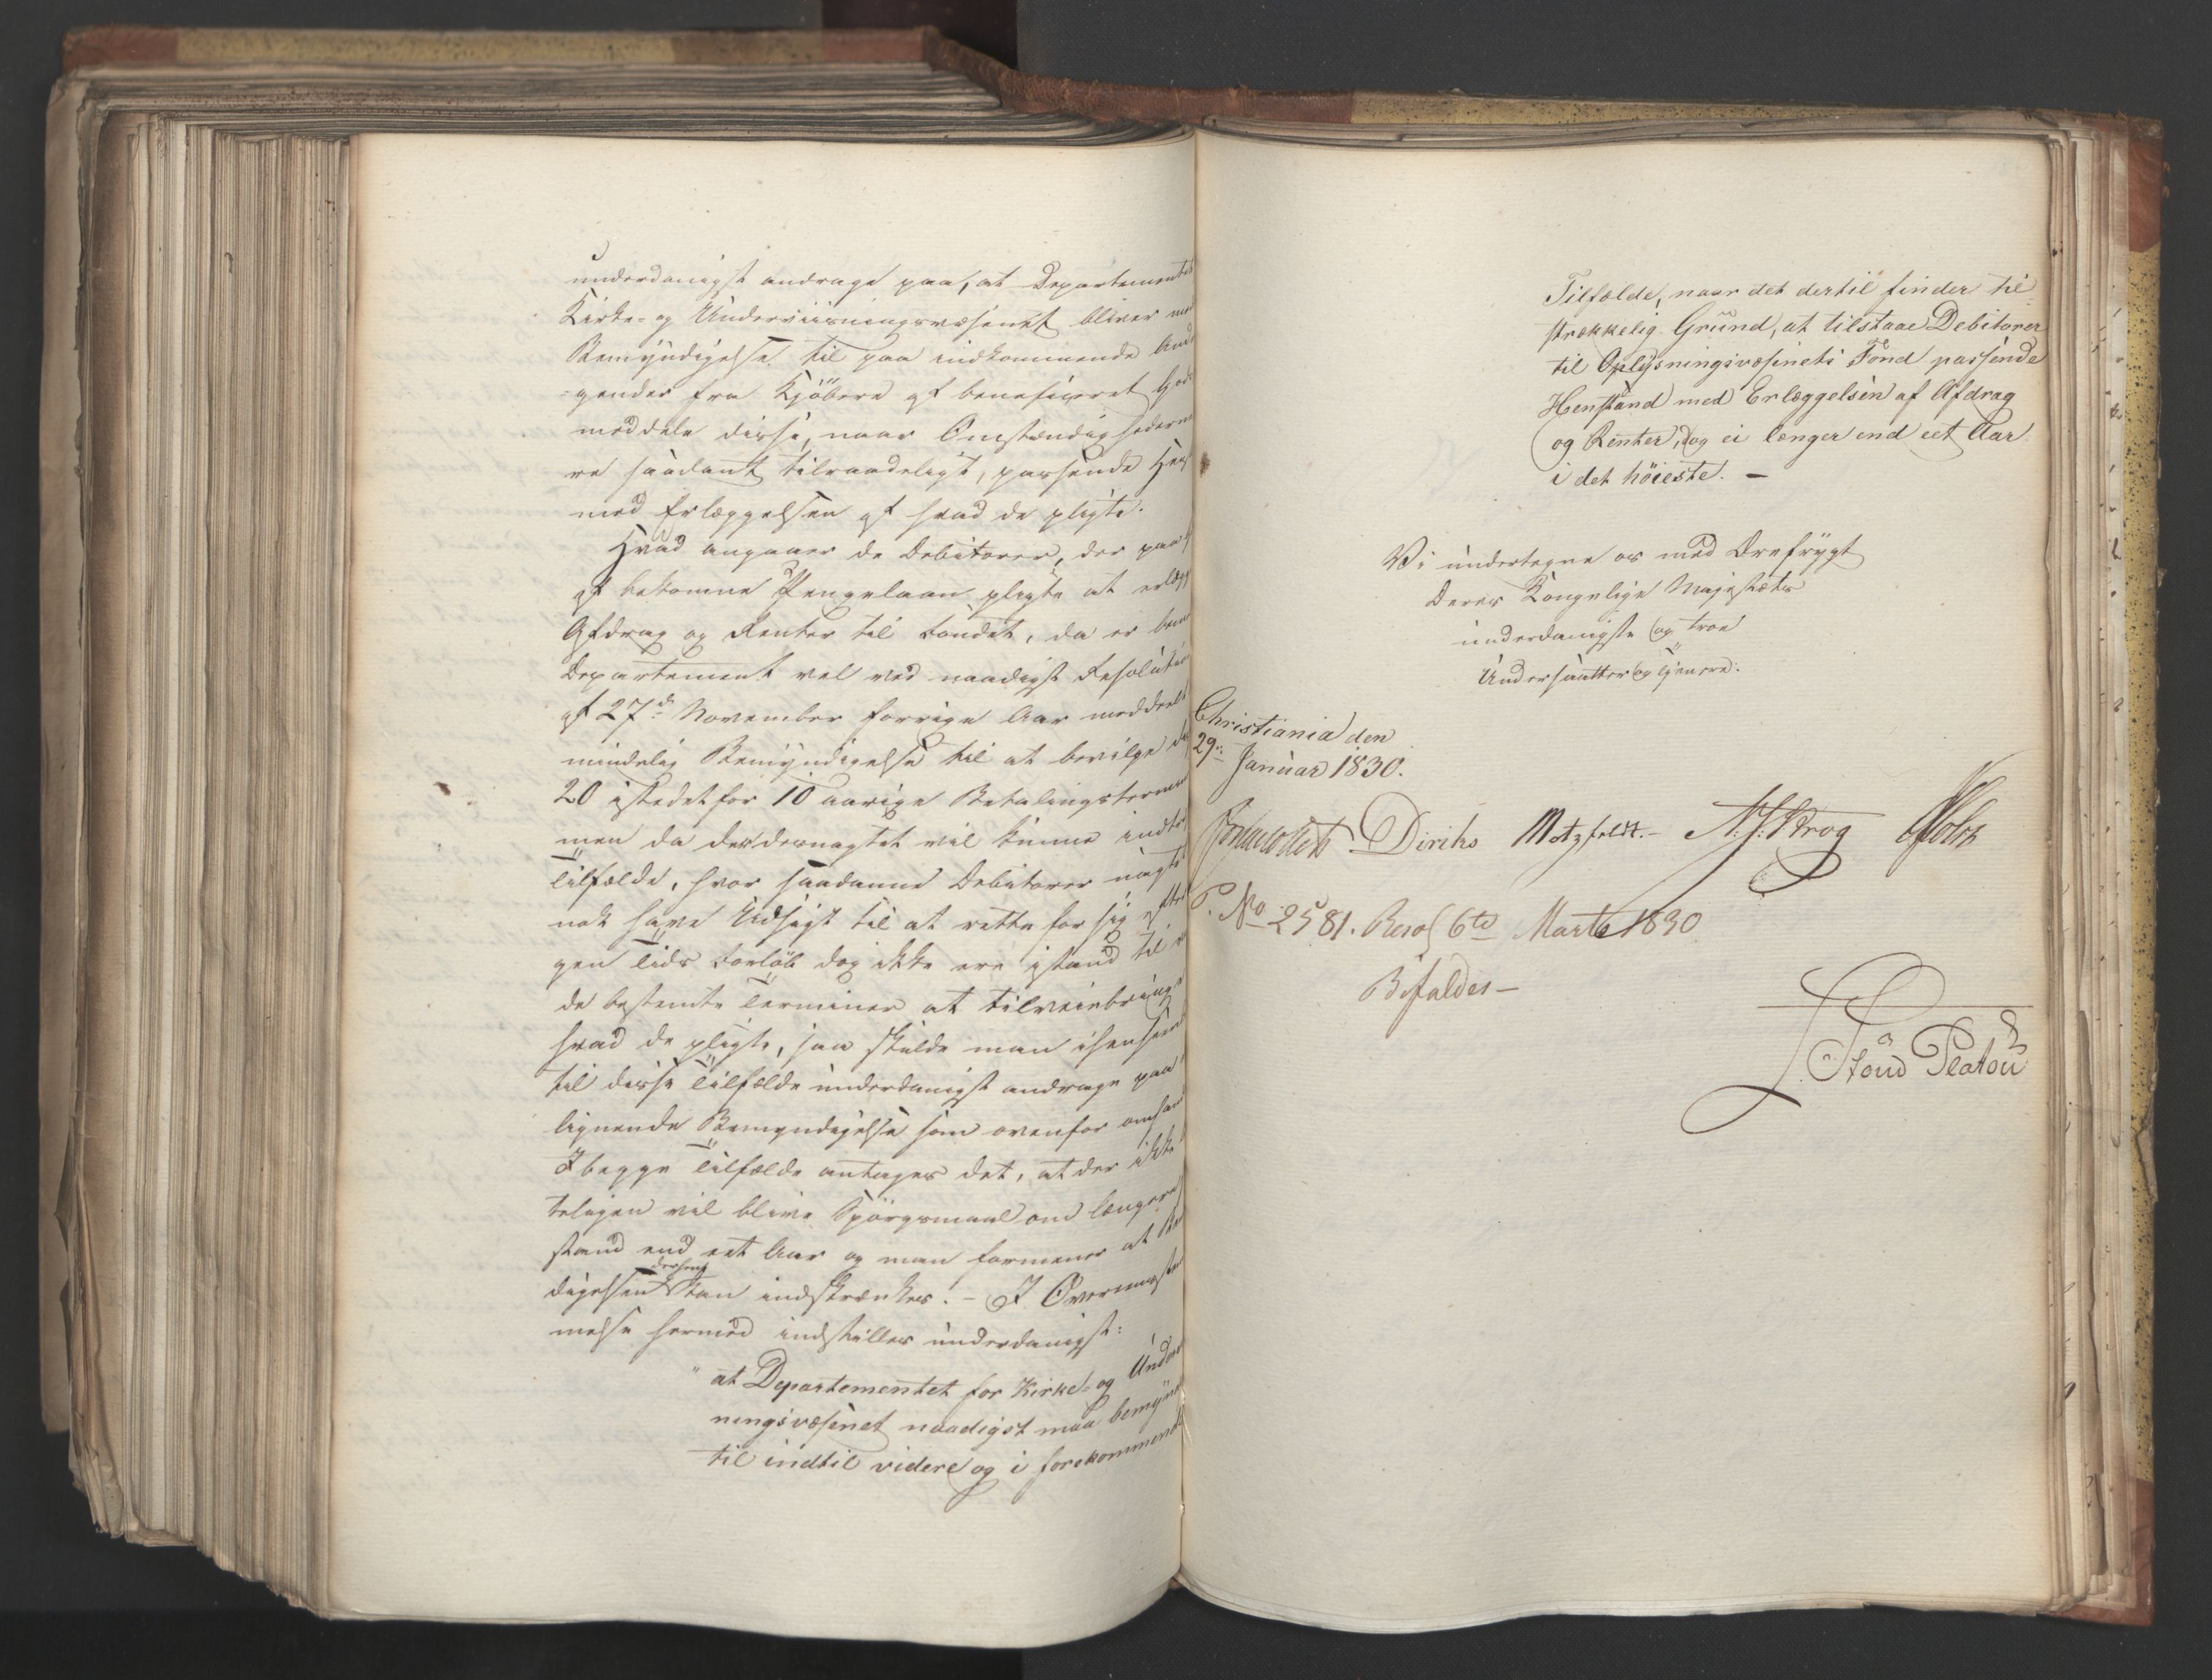 underdanigst andrage paa, at Departementet
Kirke- og Underviisningsvæsenet bliver med
Bemyndigelse til paa indkommende And
=gender fra Kjöbere af beneficeret Gods
meddele disse, naar Omstændighederne
re saadant tilraadeligt, passende Hen
med Erlæggelsen af hvad de pligte.
Hvad angaaer de Debitorer, der paa
af bekomne Pengelaan pligte at erlægg
Afdrag og Renter til Fondet, da er bem
Departement vel ved naadigst Resolution
af 27de November forrige Aar meddeelt
mindelig Bemyndigelse til at bevilge
20 istedetfor 10 aarige Betalingsterminer
men da der desuagtet vil kunne indtr
Tilfælde, hvor saadanne Debitorer vist
nok have Udsigt til at rette for sig efter
gen Tids Forløb dog ikke ere istand til
de bestemte Terminer at tilveiebringe
hvad de pligte, saa skulde man ihenseende
til disse Tilfælde underdanigst andrage paa
lignende Bemyndigelse som ovenfor omhan
I begge Tilfælde antages det, at der ikke
teligen vil blive Spörgsmaal om længere
stand end eet Aar og man formener at Be
digelsen dertil kan indskrænkes. – I Overeenste
melse hermed indstilles underdanigst:
" at Departementet for Kirke- og Under
ningsvæsenet naadigst maa bemynd
til indtil videre og i forekommende
Tilfælde, naar det dertil finder til=
strækkelig Grund, at tilstaae Debitorer
til Oplysningsvæsenets Fond passende
Henstand med Erlæggelsen af Afdrag
og Renter, dog ei længer end eet Aar
i det höieste. –
Vi undertegne os med Ærefrygt
Deres Kongelige Majestæts
underdanigste og troe
Undersaatter og Tjenere.
Christiania den
29de Januar 1830.
Diriks Motzfeldt. – N. J. Krog Holst
P. No 2581. Resol 6te Marts 1830
Bifaldes –
Stoud Platou